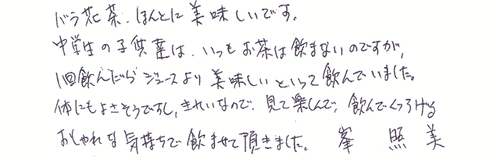 バラ花茶、ほんとに美味しいです。
中学生の子供達は、いつもお茶は飲まないのですが、
1回飲んだらジュースより美味しいといって飲んでいました。
体にもよさそうですし、きれいなので、見て楽しんで、飲んでくつろげる
おしゃれな気持ちで飲ませて頂きました。 峯 照美